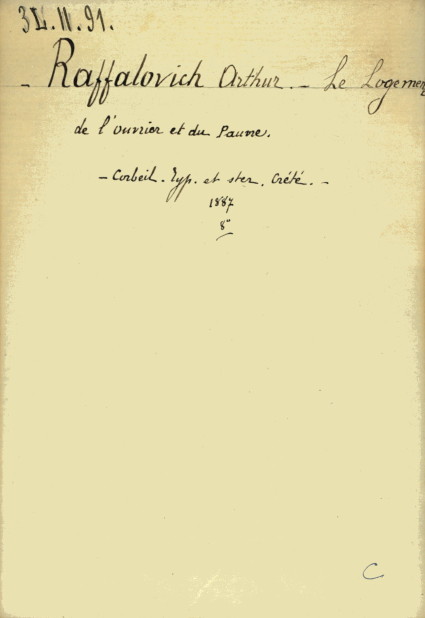 3L.II.91.
- Raffalovich Arthur. - Le Logemen
de l'ouvrier et du Pauvre.
- Corbeil. Typ. et ster. Crété. -
1887
8°
C